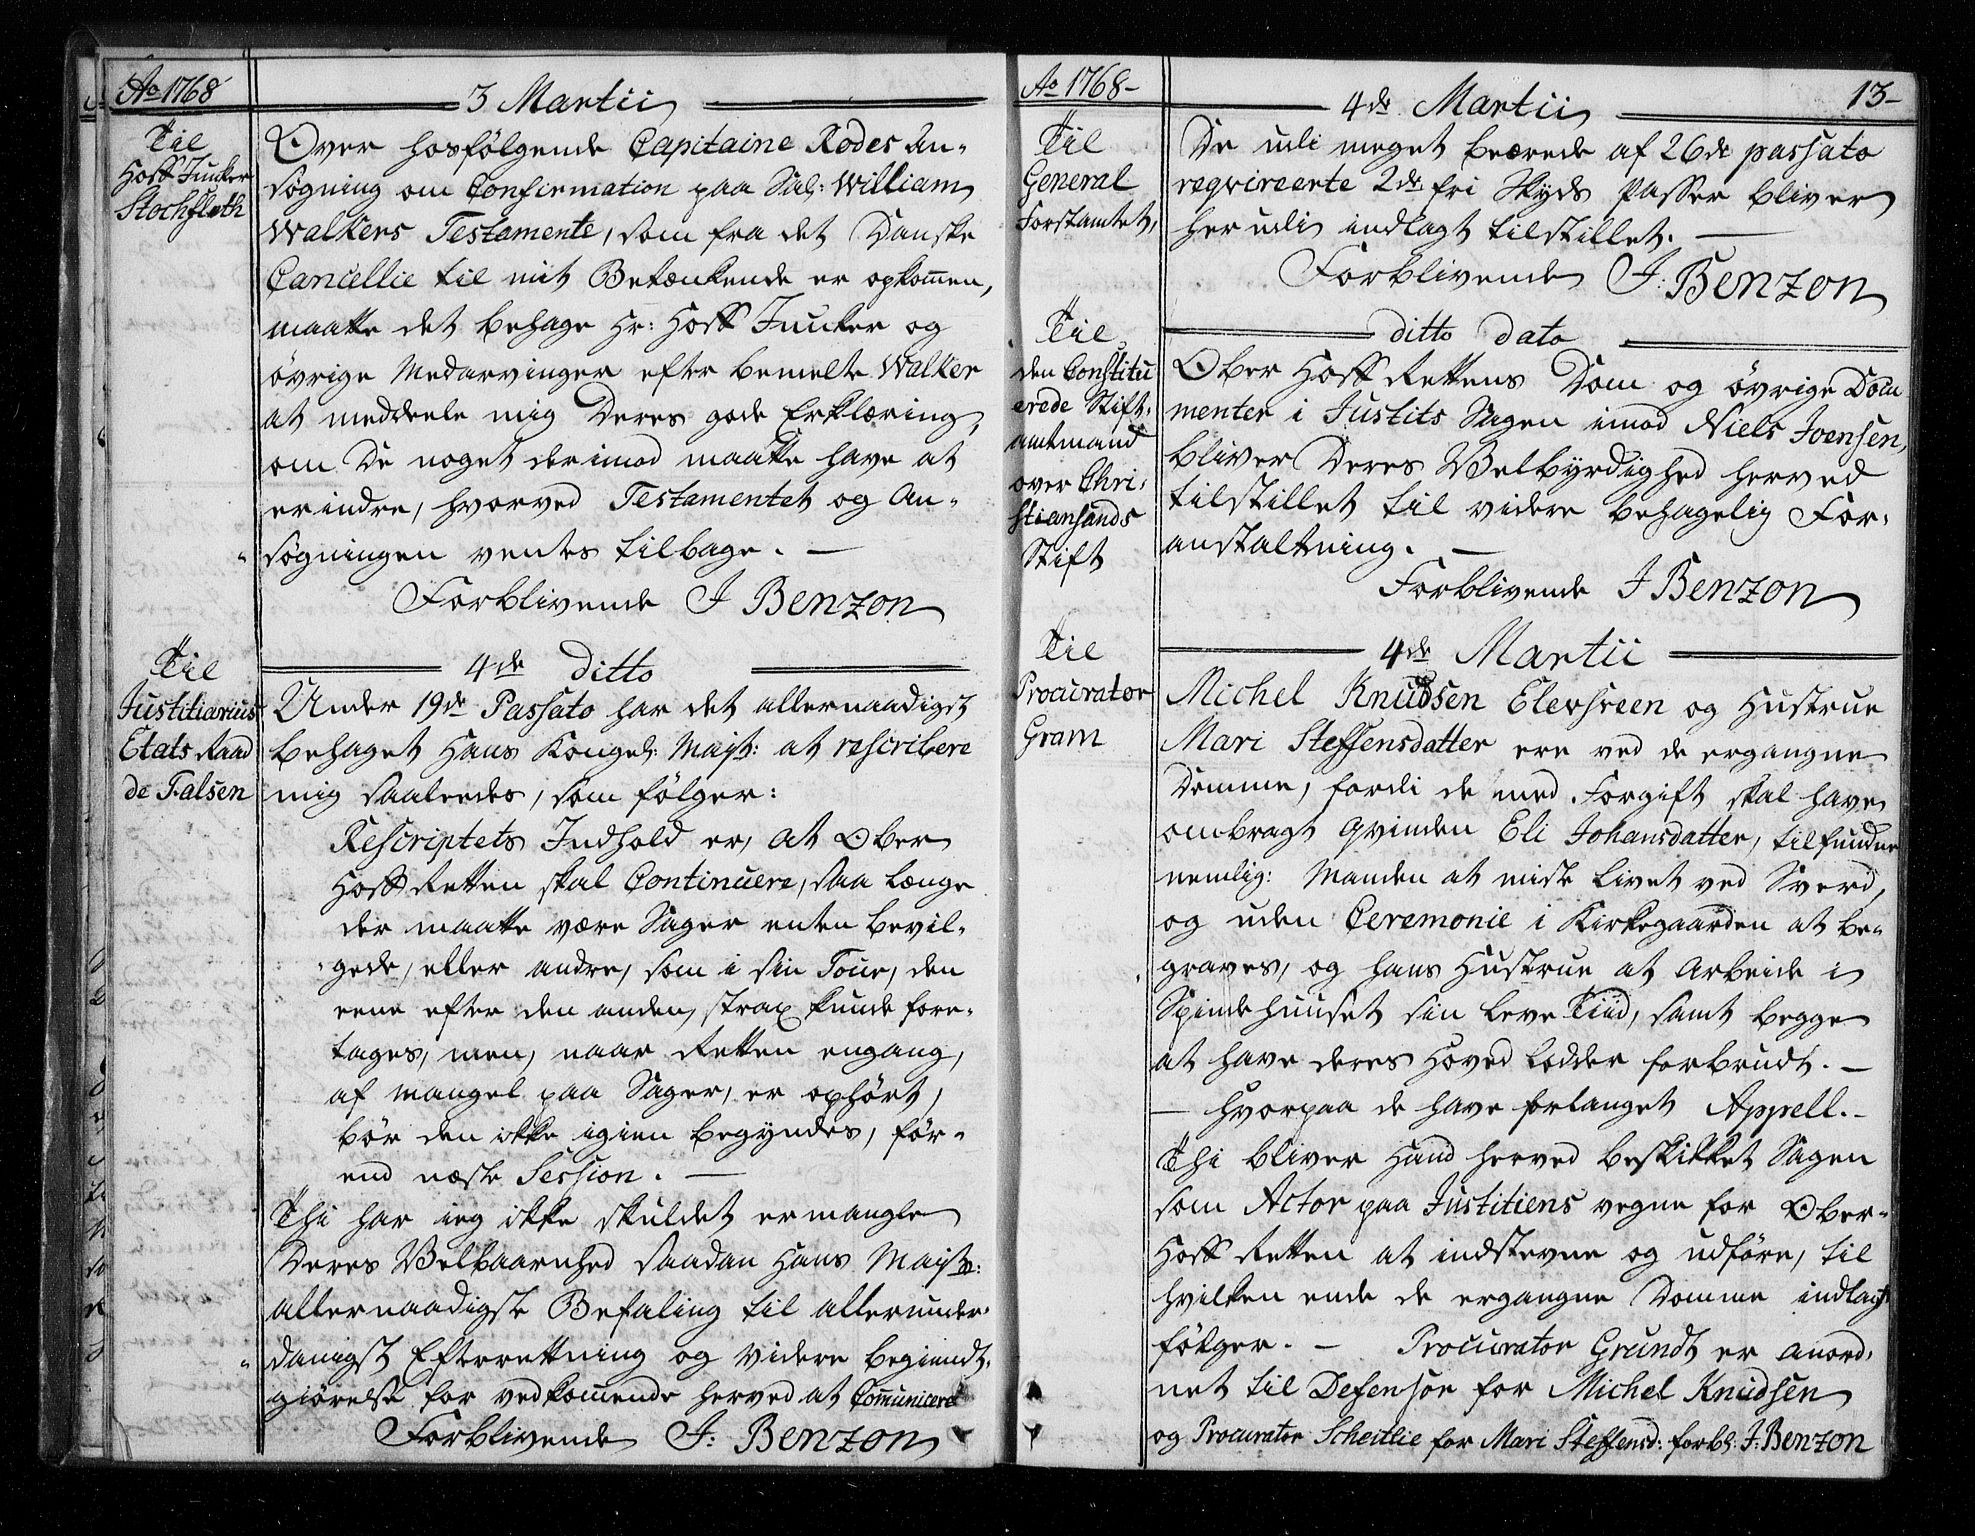 Ao 1768
3 Martii
Til
Hoff Juncker
Stochfleth
Over hosfølgende Capitaine Rodes An-
søgning om Confirmation paa Sal: William
Walkers Testamente, som fra det Danske
Cancellie til mit Betænkende er opkom̅en,
maatte det behage Hr: Hoff Juncker og
øvrige Medarvinger efter bemelte Walker
at meddeele mig Deres gode Erklæring,
om De noget derimod maatte have at
erindre, hvorved Testamentet og An-
søgningen ventes tilbage. —
Forblivende J Benzon
4de ditto
Til
Justitiarius
Etats Raad
de Falsen
Under 19de Passato har det allernaadigst
behaget Hans Kongel: Majst: at rescribere
mig saaledes, som følger:
Rescriptets Indhold er, at Ober
Hoff Retten skal Continuere, saa længe
der maatte være Sager enten bevil-
gede, eller andre, som i sin Tour, den
eene efter den anden, strax kunde fore-
tages, men, naar Retten engang,
af mangel paa Sager, er ophørt,
bør den ikke igien begyndes, før-
end næste Session. —
Thi har ieg ikke skuldet ermangle
Deres Velbaarnhed saadan Hans Majst:
allernaadigste Befaling til allerunder-
danigst Efterretning og videre begiendt-
giørelse for vedkom̅ende herved at Com̅unicere
Forblivende J: Benzon
Ao 1768-
4de Martii
13-
Til
General
Forstamtet,
De udi meget beærede af 26de passato
reqvireerte 2de fri Skyds Passer bliver
herudi indlagt tilstillet. —
Forblivende J: Benzon
ditto dato
Til
den Constitu
erede Stift-
amtmand
over Chri-
stiansands
Stift
Ober Hoff Rettens Dom og øvrige Docu
menter i Justits Sagen imod Niels Joensen,
bliver Deres Velbyrdighed herved
tilstillet til videre behagelig For-
anstaltning. —
Forblivende J Benzon
4de Martii
Til
Procurator
Gram
Michel Knudsen Elevsreen og Hustrue
Mari Steffensdatter ere ved de ergangne
Domme, fordi de med Forgift skal have
ombragt qvinden Eli Johansdatter, tilfundne
nemlig: Manden at miste Livet ved Sverd,
og uden Ceremonie i Kirkegaarden at be-
graves, og hans Hustrue at Arbeide i
Spindehuuset sin Leve Tiid, samt begge
at have deres Hoved Lodder forbrudt. —
— hvorpaa de have forlanget Appell. -
Thi bliver Hand herved beskikket Sagen
som Actor paa Justitiens vegne for Ober-
Hoff Retten at indstevne og udføre, til
hvilken ende de ergangne Domme indlagt
følger. — Procurator Grundt er anord-
net til Defensor for Michel Knudsen
og Procurator Scheitlie for Mari Steffensd: forbl: J: Benzon